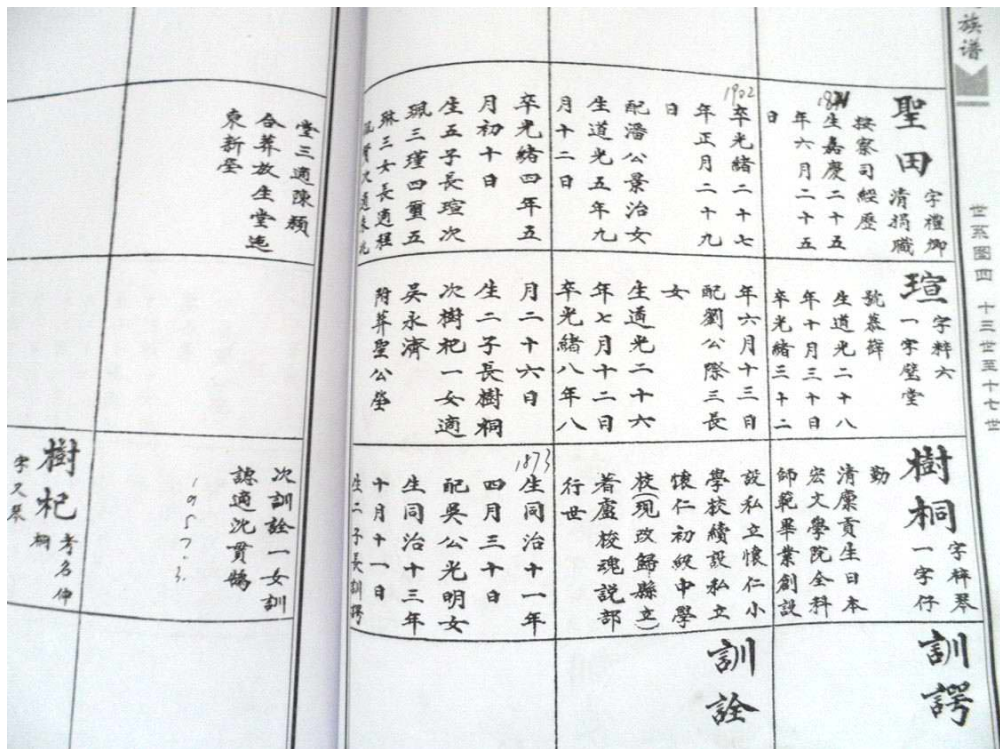 族谱
世系圖四 十三世至十七世
聖田
字禮卿
清捐職
按察司經歷
生嘉慶二十五
年六月二十五
日
1902
卒光緒二十七
年正月二十九
日
配潘公景治女
生道光五年九
月十二日
卒光緒四年五
月初十日
生五子長瑄次
珮三瑾四璽五
琳三女長適程
瑄
字粹六
一字瑩堂
號慕韓
生道光二十八
年十月三十日
卒光緒三十二
年六月十三日
配劉公際三長
女
生道光二十六
年七月十二日
卒光緒八年八
月二十六日
生二子長樹桐
次樹杞一女適
吳永濟
附葬聖公塋
樹桐
字梓琴
一字仔
勤
清廩貢生日本
宏文學院全科
師範畢業創設
設私立懷仁小
學校續設私立
懷仁初級中學
校(現改歸縣立)
著盧梭魂說部
行世
1873
生同治十一年
四月三十日
配吳公光明女
生同治十三年
十月十一日
生二子長訓諤
訓諤
訓詮
堂三適陳穎
合葬放生堂迤
東新塋
次訓詮一女訓
諗適沈貫鵠
1957.3.
樹杞
考名仲
桐
字又琴